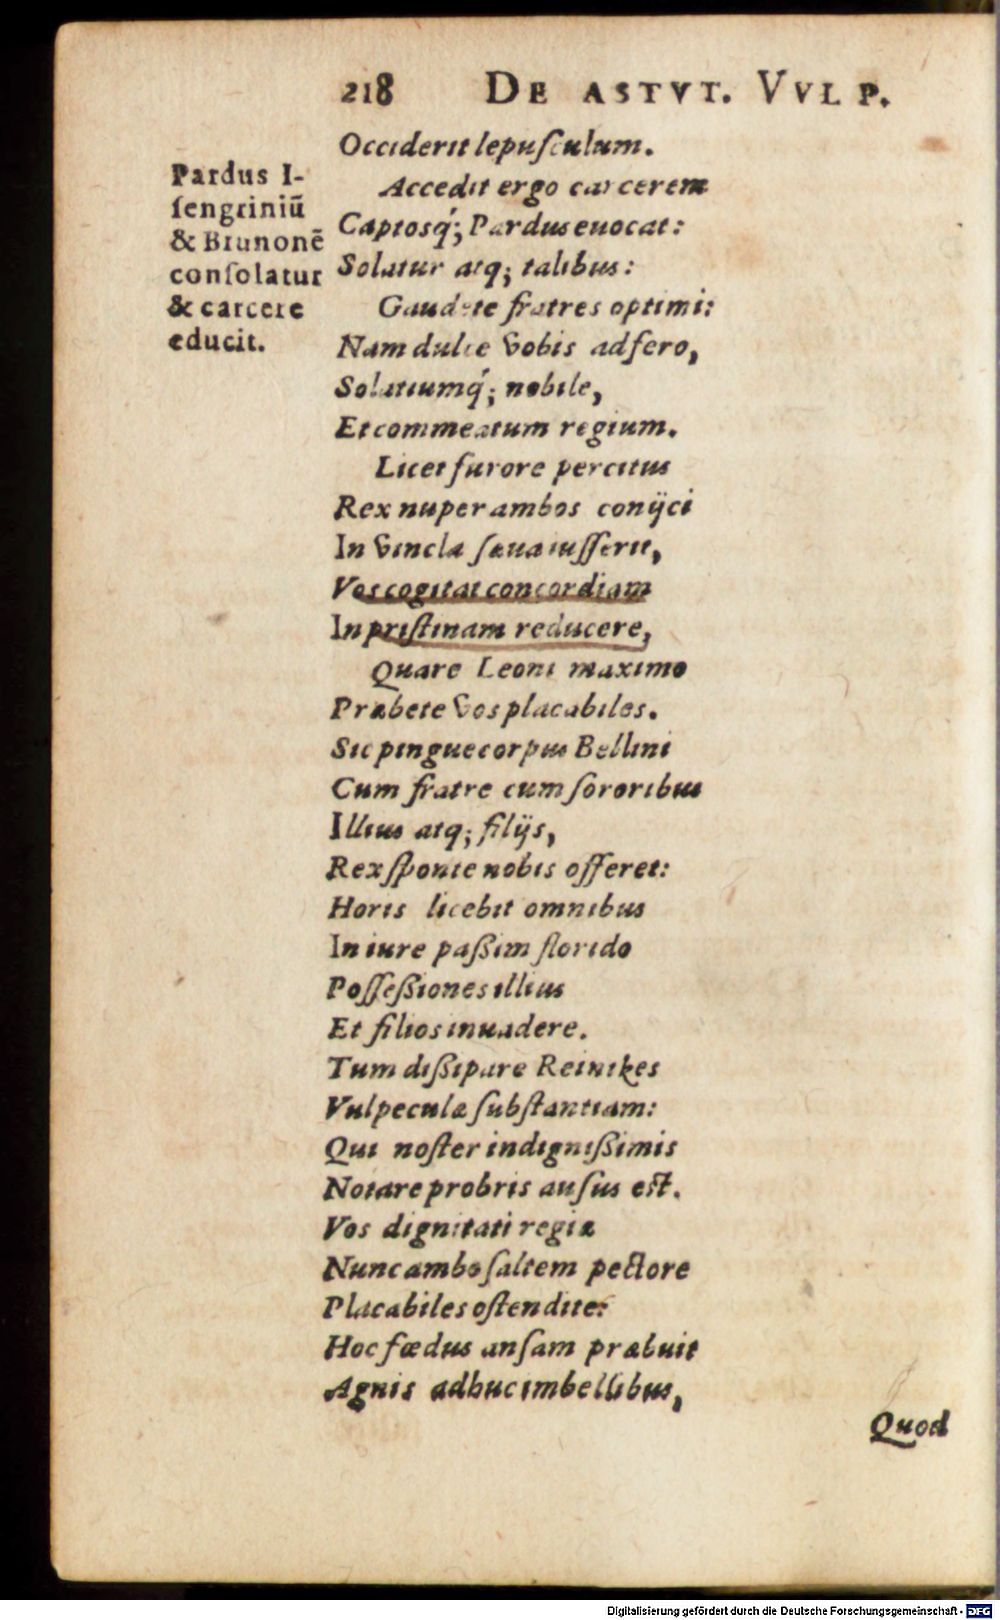 218 DE ASTVT. VVLP.
Occiderit lepuſculum.
Accedit ergo carcerem
Captosq́; Pardus euocat:
Solatur atq; talibus:
Gaudete fratres optimi:
Nam dulce vobis adfero,
Solatiumq́; nobile,
Et commeatum regium.
Licet furore percitus
Rex nuper ambos conijci
In vincla ſæua iuſſerit,
Vos cogitat concordiam
In priſtinam reducere,
Quare Leoni maximo
Præbete vos placabiles.
Sic pingue corpus Bellini
Cum fratre cum ſororibus
Illius atq; filijs,
Rex ſponte nobis offeret:
Horis licebit omnibus
In iure paßim florido
Poſſeßiones illius
Et filios inuadere.
Tum dißipare Reinikes
Vulpeculæ ſubſtantiam:
Qui noſter indignißimis
Notare probris auſus eſt.
Vos dignitati regiæ
Nunc ambo ſaltem pectore
Placabiles oſtendite:
Hoc fœdus anſam præbuit
Agnis adhuc imbellibus,
Quod
Pardus I-
ſengriniũ
& Brunonẽ
conſolatur
& carcere
educit.
Digitalisierung gefördert durch die Deutsche Forschungsgemeinschaft - DFG